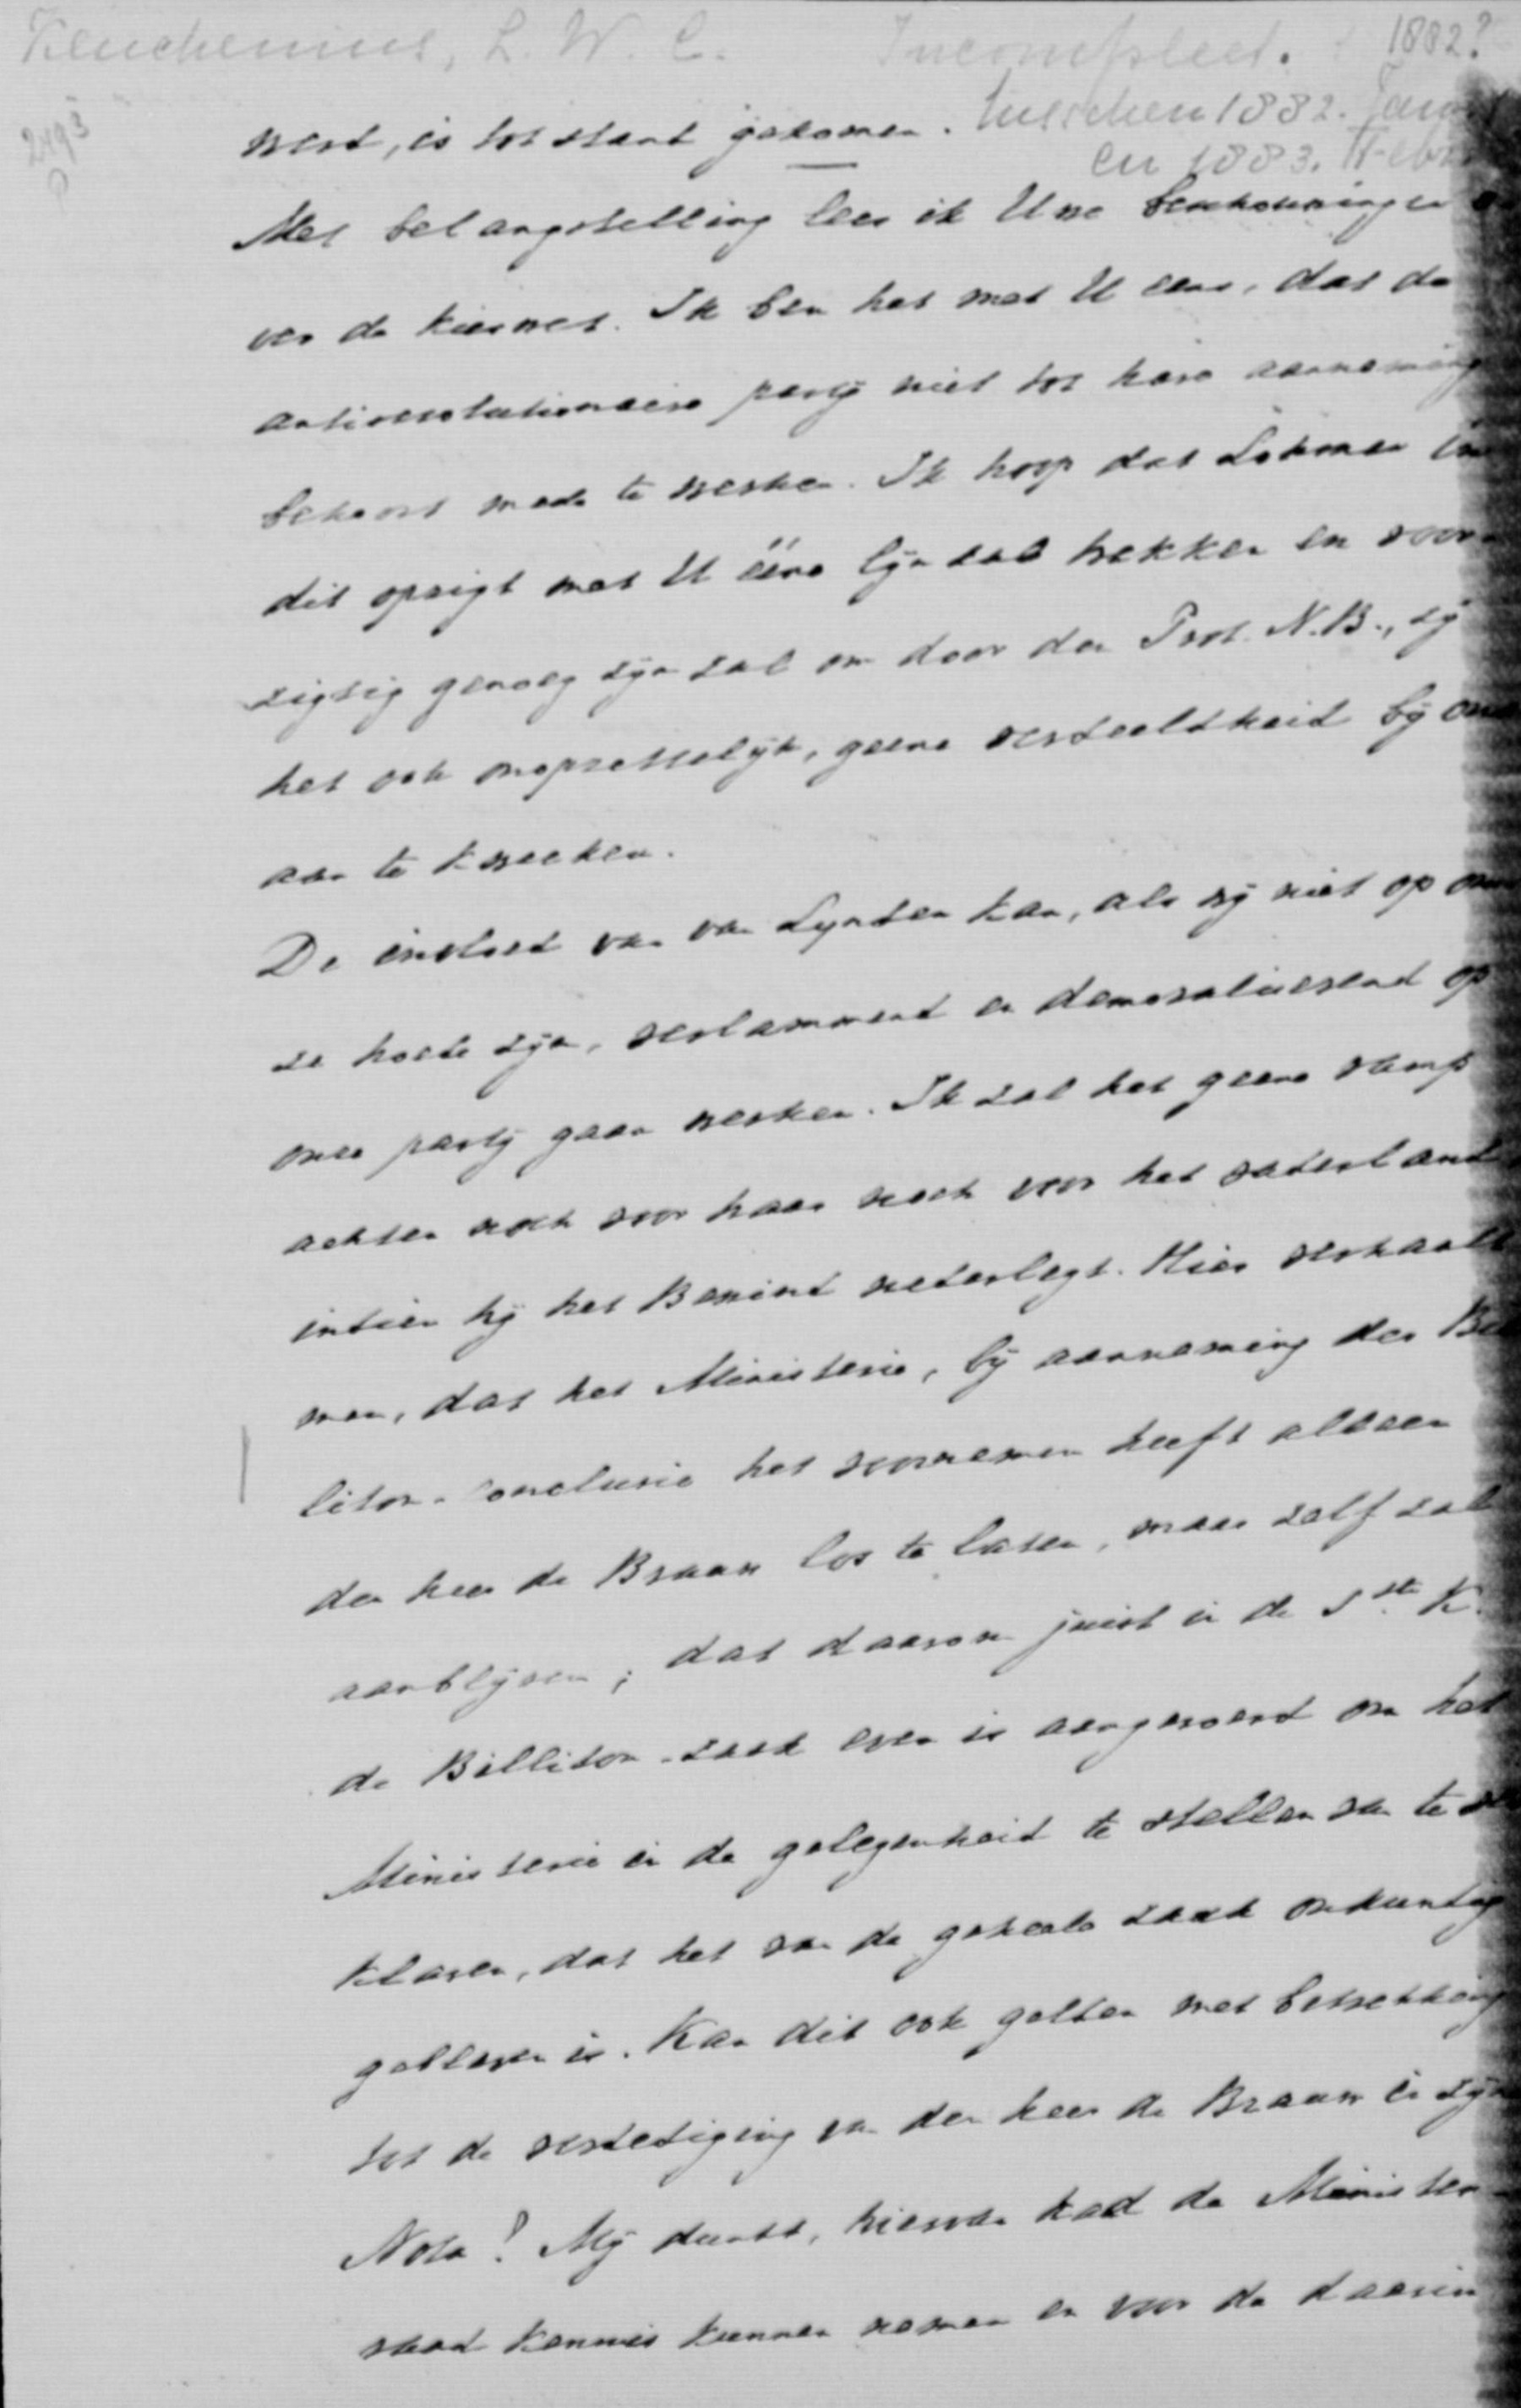 Keuchenius, L. W. C. Incompleet. 1882?
tusschen 1882. Jan
en 1883. Febr
2493
werd, is tot stand gekomen.
Met belangstelling lees ik Uwe beschouwingen
ver de kieswet. Ik ben het met U eens, dat de
antirevolutionaire party niet tot hare aanneming
behoort mede te werken. Ik hoop dat Lohman in
dit opzigt met U ééne lyn zal trekken en voor-
zigtig genoeg zyn zal om door den Prot. N.B., zij
het ook onopzettelyk, geene verdeeldheid by ons
aan te kweeken.
De invloed van van Lynden kan, als wy niet op on
ze hoede zyn, verlammend en demoraliseerend op
onze party gaan werken. Ik zal het geene ramp
achten noch voor haar noch voor het vaderland
indien hy het Bewind nederlegt. Hier verhaalt
men, dat het Ministerie, by aanneming der Bil
liton-conclusie het voornemen heeft alleen
den heer de Brauw los te laten, maar zelf zal
aanblyven; dat daarom juist in de 1ste K.
de Billiton-zaak even is aangeroerd om het
Ministerie in de gelegenheid te stellen om te ver
klaren, dat het van de geheele zaak onkundig
gebleven is. Kan dit ook gelden met betrekking
tot de verdediging van den heer de Brauw in zyn
Nota? My dunkt, hiervan had de Minister-
raad kennis kunnen nemen en voor de daarin